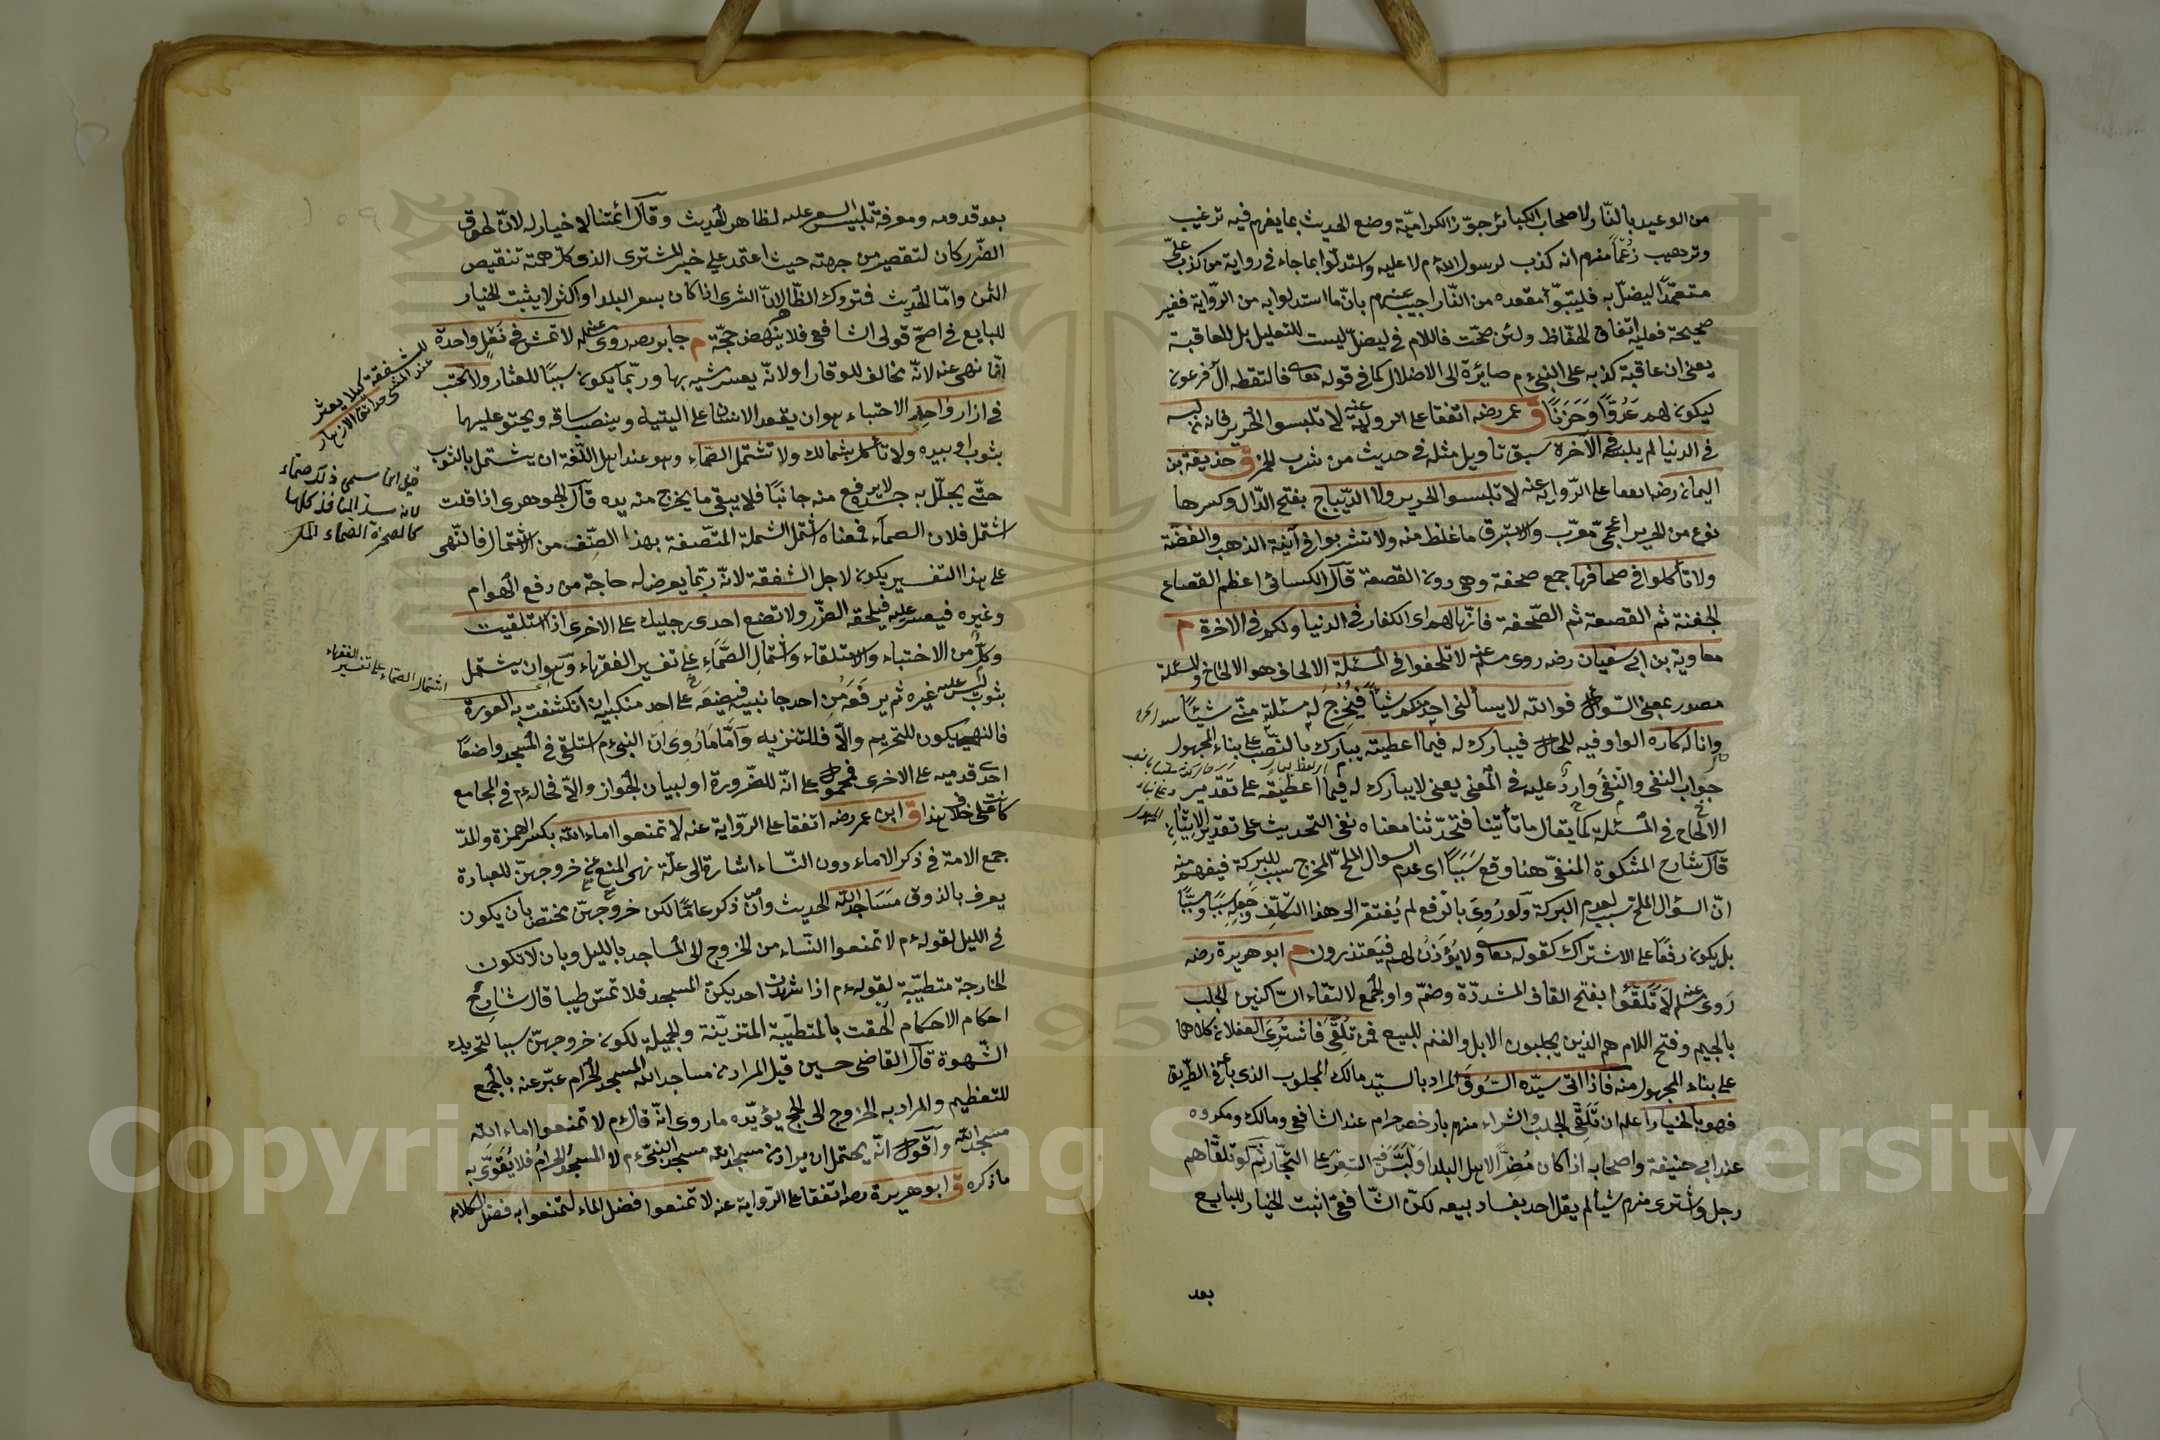 من الوعيد بالنّار لاصحاب الكبائر جوّز الكراميّة وضع الحديث بما يفهم فيه ترغيب
وترهيب زعماً منهم انه كذب لرسول الله م لا عليه واستدلّوا بما جاء في رواية من كذب علىّ
متعمّداً ليضلّ به فليتبوّأ مقعده من النّار اجيب عنهم بانّ ما استدلوا به من الرّواية فغير
صحيحة فعليه اتفاق الحفّاظ ولئن صحّت فاللام في ليضلّ ليست للتعليل بل للعاقبة
يعنى ان عاقبة كذبه على النبىّ م صائرة الى الاضلال كما في قوله تعالى فالتقطه آل فرعون
ليكون لهم عَدُوّاً وَحَزَناً ق عمر رضه اتفقا على الرواية عنه لا تلبسوا الحرير فانه من لبسه
في الدنيا لم يلبسه في الآخرة سبق تاويل مثله في حديث من شرب الخمر ق حذيفة بن
اليمان رضه اتفقا على الرّواية عنه لا تلبسوا الحرير ولا الدّيباج بفتح الدّال وكسرها
نوع من الحرير اعجمىّ معرّب والاستبرق ما غلظ منه ولا تشربوا في آنية الذهب والفضّة
ولا تأكلوا في صحافها جمع صحفة وهى دون القصعة قال الكسائى اعظم القصاع
الجفنة ثم القصعة ثم الصّحفة فانّها لهم اى الكفار في الدنيا ولكم في الآخرة م
معاوية بن ابى سفيان رضه روى مسلم عنه لا تلحفوا في المسئلة الالحاف هو الالحاح والمسئلة
مصدر بمعنى السّؤال فوالله لا يسألنى احد منكم شيئاً فَيُخْرِجَ له مسئلته منّى شيئاً
وانا له كاره الواو فيه للحال فيبارك له فيما اعطيته يبارك بالنّصب على بناء المجهول
جواب النفى والنفىُ واردٌ عليه في المعنى يعنى لا يبارك له فيما اعطيته على تقدير
الالحاح في المسئلة كما يقال ما تأتينا فتحدّثنا معناه نفى التحديث على تقدير الاتيان
قال شارح المشكوة المنفىّ هنا وقع سَبَباً اى عدم السوال الملحّ المخرج سبب للبركة فيفهم منه
انّ السؤال الملحّ سبب لعدم البركة ولو رُوِىَ بالرفع لم يُفتقر الى هذا التكلّف وجعله سبباً ومسبّباً
بل يكون رفعاً على الاشتراك كقوله تعالى ولا يُؤذَنُ لهم فيَعتذرون م ابو هريرة رضه
رَوى مسلم عنه لَا تَلَقَّوُا بفتح القاف المشددّة وضمّ واو الجمع لالتقاء السّاكنين الجلب
بالجيم وفتح اللام هم الذين يجلبون الابل والغنم للبيع فمن تُلُقِّىَ فَاشتُرِىَ الفعلان كلاهما
على بناء المجهول منه فاذا اتى سيّده السّوقَ المراد بالسيّد مالك المجلوب الذى باع في الطّريق
فهو بالخيار اعلم ان تَلَقِّى الجلب والشراء منهم بارخص حرام عند الشافعى ومالك ومكروه
عند ابى حنيفة واصحابه اذا كان مُضِرّاً لاهل البلد او لَبَّسَ فيه السّعر على التّجّار ثمّ لو تلقّاهم
رجل واشترى منهم شيأ لم يقل احد بفساد بيعه لكنّ الشّافعىّ اثبت الخيار للبايع
بعد
بعد قدومه ومعرفة تلبيس السعر عليه لظاهر الحديث وقال ائمتنا لا خيار له لانّ لحوق
الضّرر كان لتقصير من جهته حيث اعتمد على خبر المشترى الذى كلّ همّته تنقيص
الثمن وامّا الحديث فتروك الظّاهر لانّ الشرى اذا كان بسعر البلد او اكثر لا يثبت الخيار
للبايع في اصحّ قولى الشافعى فلا ينهض حجّة م جابر رضه روى مسلم عنه لا تمش في نَعْلٍ واحدة
انّما نهى عنه لانّه مخالف للوقار او لانّه يعسر مشيه بها وربّما يكون سبباً للعثار ولا تحتب
في ازار واحد الاحتباء هو ان يقعد الانسان على اليتيه وينصب ساقه ويحتوى عليهما
بثوب او بيده ولا تأكل بشمالك ولا تشتمل الصّمّاء وهو عند اهل اللّغة ان يشتمل بالثوب
حتّى يجلّل به جسده لا يرفع منه جانباً فلا يبقى ما يخرج منه يده قال الجوهرى اذا قلت
اشتمل فلان الصمّآء فمعناه اشتمل الشملة المتّصفة بهذا الصنف من الاشتمال فالنّهى
على هذا التفسير يكون لاجل الشفقة لانّه ربّما يعرض له حاجة من رفع الهوام
وغيره فيعسر عليه فيلحقه الضّرر ولا تضع احدى رجليك على الاخرى اذا استلقيت
وكلٌّ من الاحتباء والاستلقاء واشتمال الصّمّاء على تفسير الفقهاء وهو ان يشتمل
بثوب ليس عليه غيره ثم يرفَعَه من احد جانبيه فيضعَه على احد منكبيه ان انكشفت به العورة
فالنهى يكون للتحريم والّا فللتنزيه وامّا ما رُوِىَ انّ النبىّ م استلقى في المسجد واضعاً
احدى قدميه على الاخرى فمحمول على انّه للضّرورة او لبيان الجواز والّا فحاله م في المجامع
كانت على خلاف هذا ق ابن عمر رضه اتفقا على الرّواية عنه لا تمنعوا اماء الله بكسر الهمزة والمدّ
جمع الامة في ذكر الاماء دون النّساء اشارة الى علّة نهى المنع عن خروجهنّ للعبادة
يعرف بالذوق مَسَاجدَ الله الحديث وان ذكر عامّاً لكن خروجهنّ مختصّ بان يكون
في الليل لقوله م لا تمنعوا النّساء من الخروج الى المساجد بالليل وبان لا تكون
الخارجة متطيّبة لقوله م اذا شهدت احديكنّ المسجد فلا تمسّ طيبا قال شارح
احكام الاحكام اُلحقت بالمتطيّبة المتزيّنة والجميلة لكون خروجهنّ سببا لتحريك
الشّهوة قال القاضى حسين قيل المراد من مساجد الله المسجد الحرام عبّر عنه بالجمع
للتعظيم والمراد به الخروج الى الحج يؤيّده ما روى انّه قال م لا تمنعوا اماء الله
مسجد الله واَقول انّه يحتمل ان يراد من مسجد الله مسجد النبىّ م لا المسجد الحرام فلا يُقوّى به
ما ذكره ق ابو هريرة رضه اتفقا على الرّواية عنه لا تمنعوا فضل الماء لتمنعوا به فضل الكلاء
للشفقة كيلا يعثر
عند المشى حدائق الازهار
قيل انما سمى ذلك صمّاء
لانه سدّ المنافذ كلها
كالصخرة الصماء
اشتمال الصمّاء على تفسير الفقهاء
Copyright © King Saud University